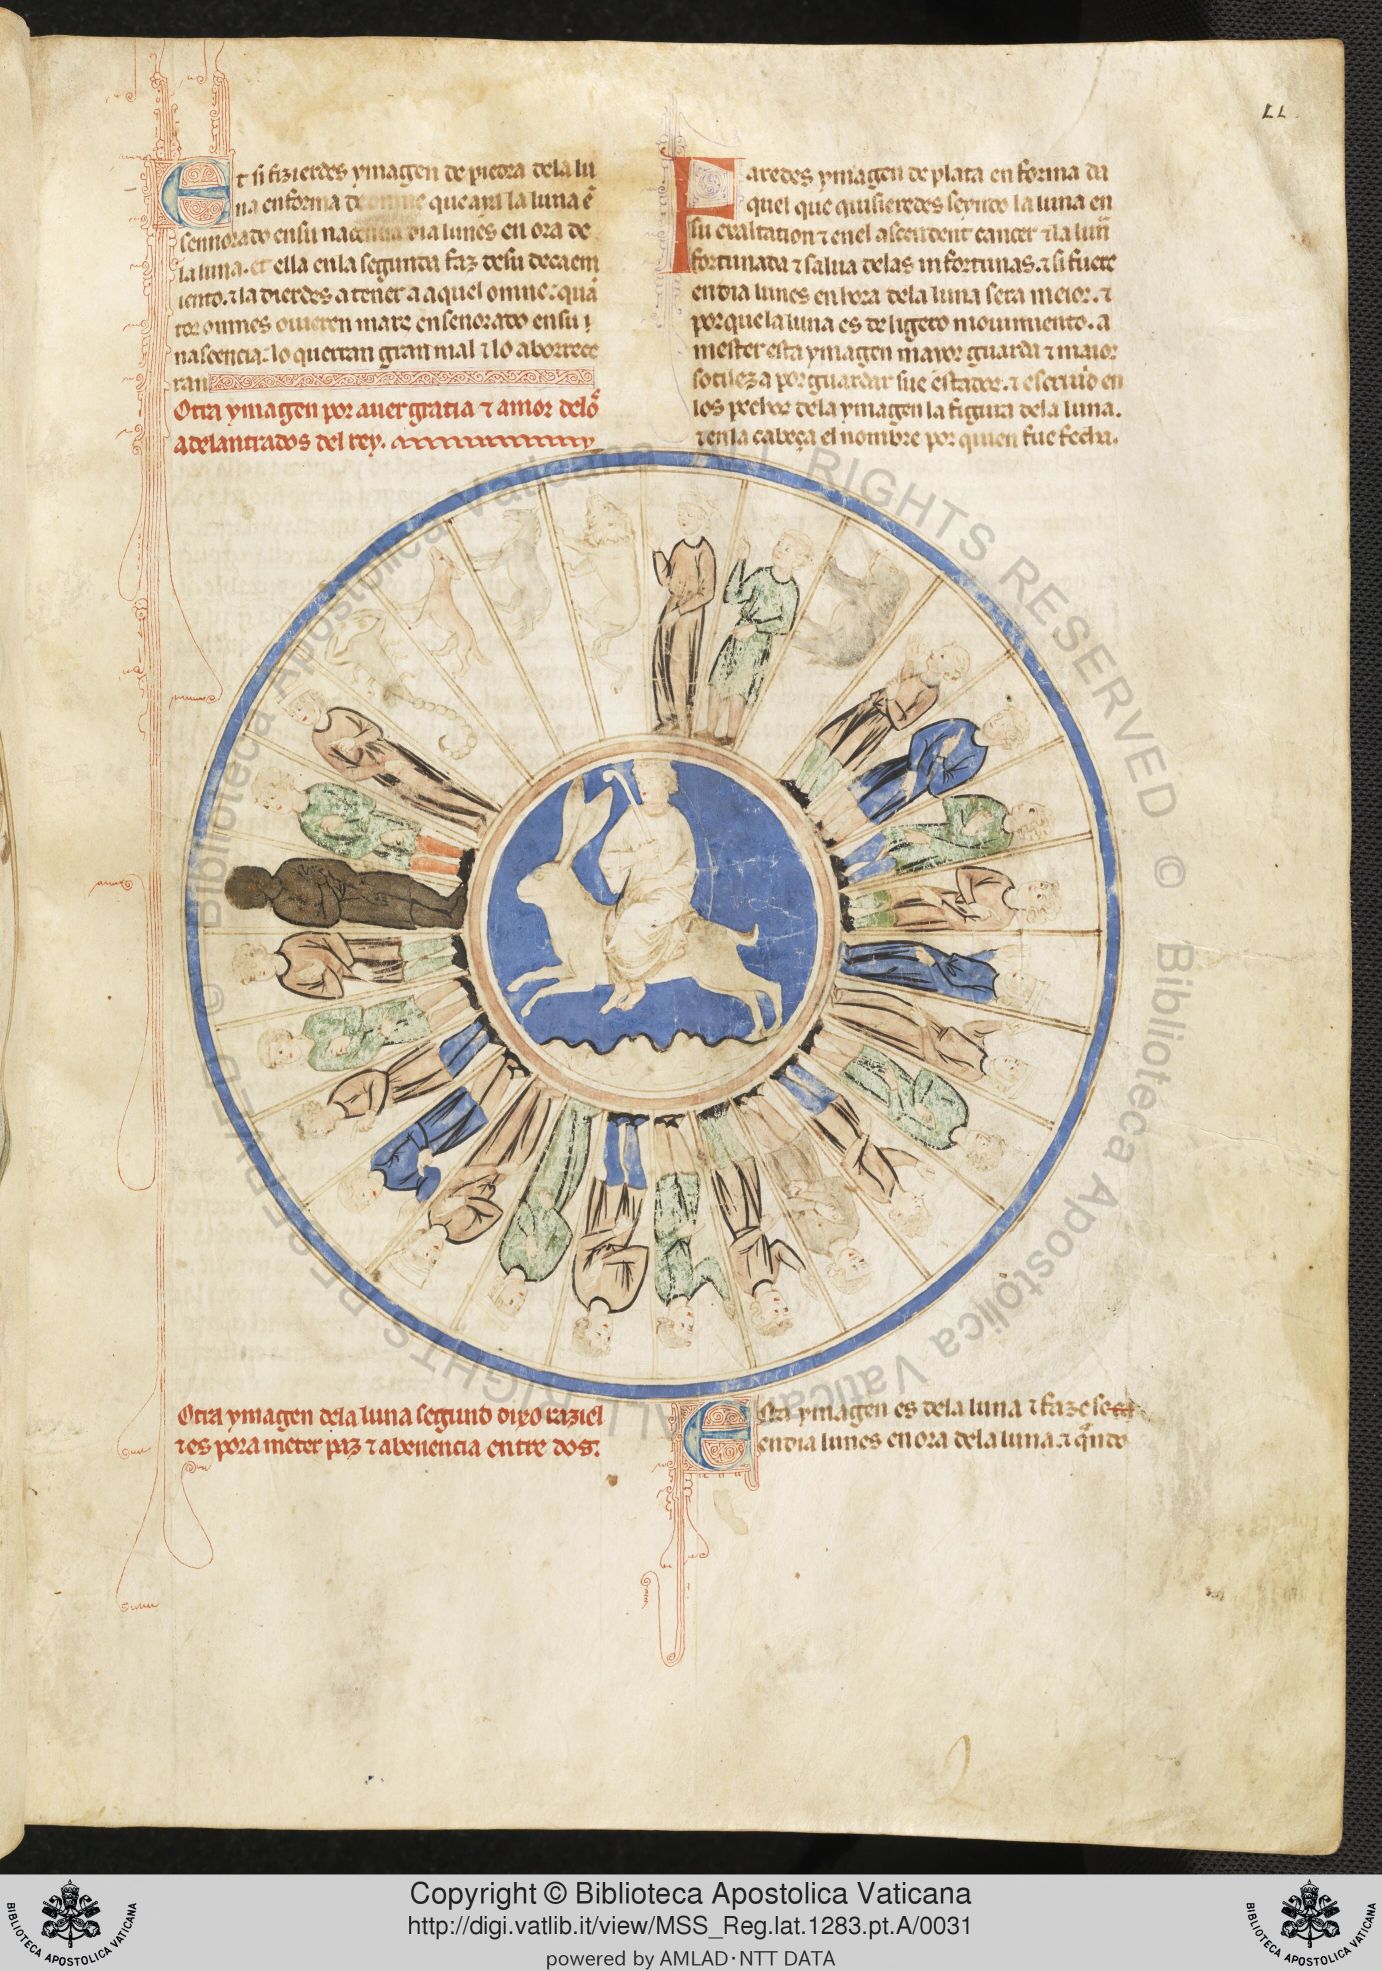 LL
Et si fizierdes ymagen de piedra dela lu
na en forma de omne que aya la luna en
sennorado en su nacencia dia lunes en ora de
la luna. et ella en la segunda faz de su decaem
iento. ⁊ la dierdes a tener a aquel omne: quan
tos omnes ouieren marz ensenorado en su
nascencia: lo querran gran mal ⁊ lo aborrece
ran
Otra ymagen por auer gratia ⁊ amor delos
adelantrados del rey.
Faredes ymagen de plata en forma da
quel que quisieredes seyndo la luna en
su exaltation ⁊ en el ascendent cancer ⁊ la luna
fortunada ⁊ salua delas infortunas. ⁊ si fuere
en dia lunes en hora dela luna sera meior. ⁊
por que la luna es de ligero mouimiento. a
mester esta ymagen mayor guarda ⁊ maior
sotileza por guardar sue estador. ⁊ escriuid en
los pechos dela ymagen la figura dela luna.
⁊ en la cabeça el nombre por quien fue fecha.
Otra ymagen dela luna segund dixo raziel
⁊ es pora meter paz ⁊ abenencia entre dos:
Esta ymagen es dela luna ⁊ faze se
en dia lunes en ora dela luna. ⁊ quando
© Biblioteca Apostolica Vaticana ALL RIGHTS RESERVED © Biblioteca Apostolica Vaticana ALL RIGHTS RESERVED
BIBLIOTECA APOSTOLICA VATICANA
Copyright © Biblioteca Apostolica Vaticana
http://digi.vatlib.it/view/MSS_Reg.lat.1283.pt.A/0031
powered by AMLAD·NTT DATA
BIBLIOTECA APOSTOLICA VATICANA